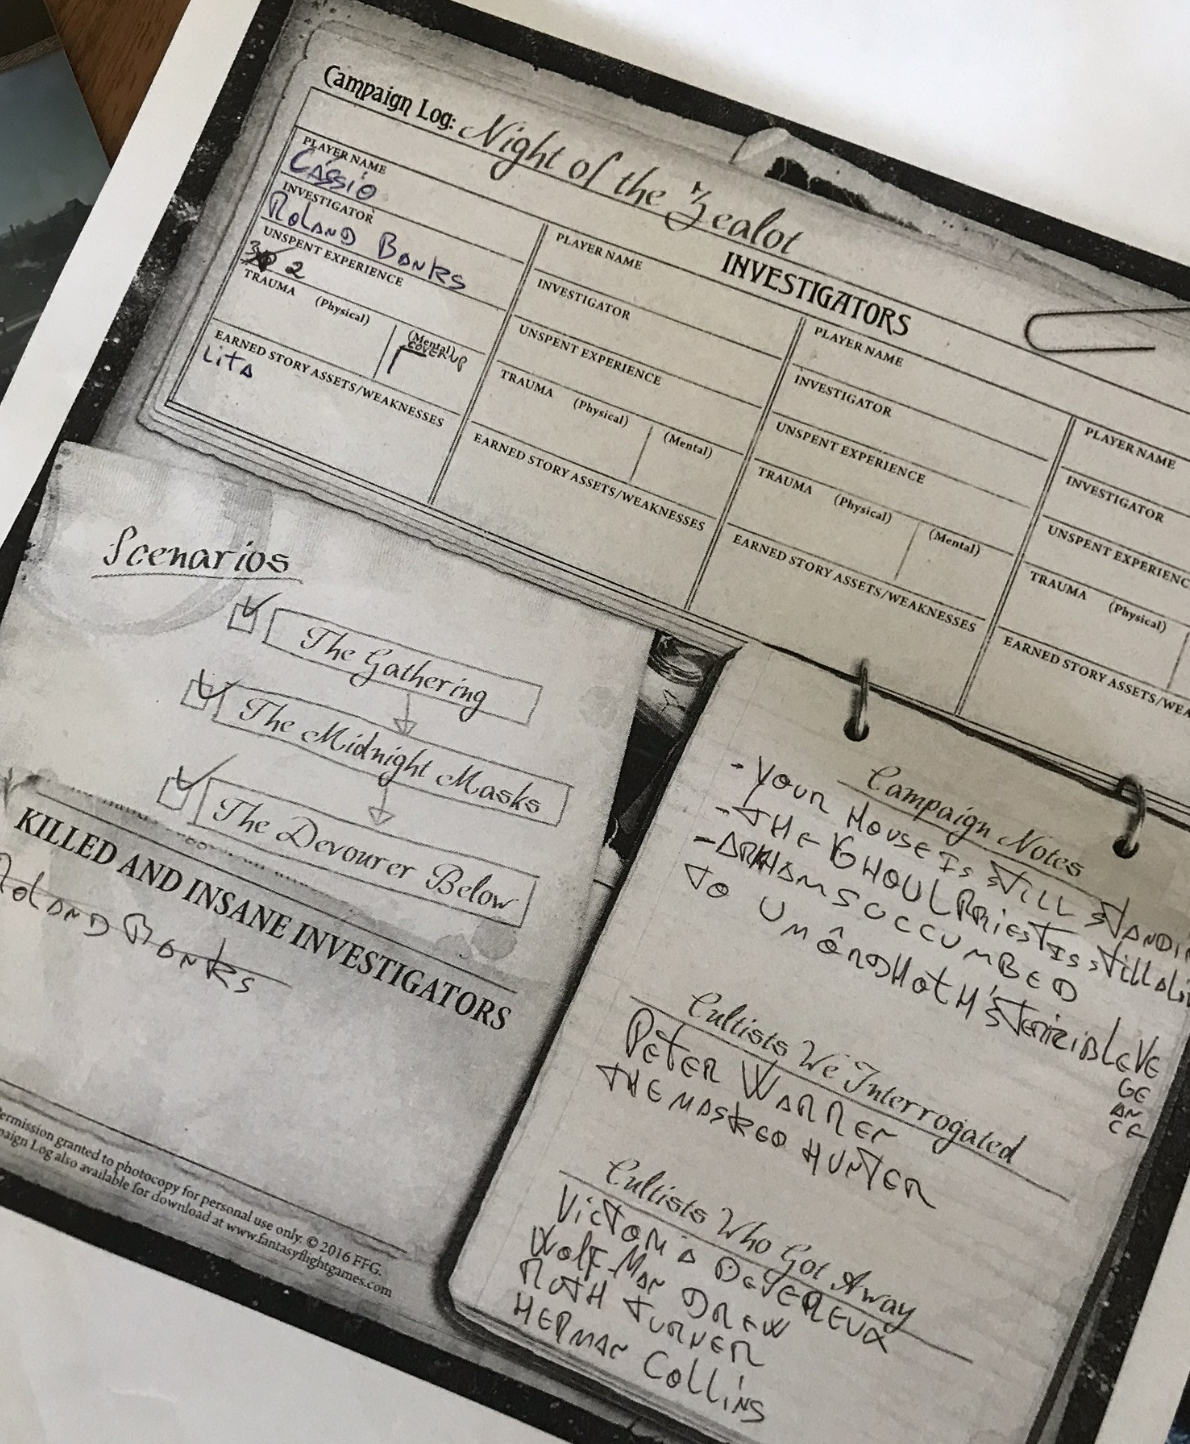 Campaign Log: Night of the Zealot
INVESTIGATORS
PLAYER NAME
CÁSSIO
INVESTIGATOR
ROLAND BANKS
UNSPENT EXPERIENCE
2
TRAUMA (Physical) (Mental)
COVER UP
EARNED STORY ASSETS/WEAKNESSES
LITA
PLAYER NAME
INVESTIGATOR
UNSPENT EXPERIENCE
TRAUMA (Physical) (Mental)
EARNED STORY ASSETS/WEAKNESSES
PLAYER NAME
INVESTIGATOR
UNSPENT EXPERIENCE
TRAUMA (Physical) (Mental)
EARNED STORY ASSETS/WEAKNESSES
PLAYER NAME
INVESTIGATOR
UNSPENT EXPERIENC
TRAUMA (Physical)
EARNED STORY ASSETS/WEA
Scenarios
The Gathering
The Midnight Masks
The Devourer Below
KILLED AND INSANE INVESTIGATORS
ROLAND BANKS
ermission granted to photocopy for personal use only. © 2016 FFG.
paign Log also available for download at www.fantasyflightgames.com
Campaign Notes
- YOUR HOUSE IS STILL STANDI
- THE GHOUL PRIEST IS STILL ALI
- ARKHAM SUCCUMBED
TO UMÔRDHOTH'S TERRIBLE VE
GE
AN
CE
Cultists We Interrogated
PETER WARREN
THE MASKED HUNTER
Cultists Who Got Away
VICTORIA DEVEREUX
WOLF-MAN DREW
RUTH TURNER
HERMAN COLLINS